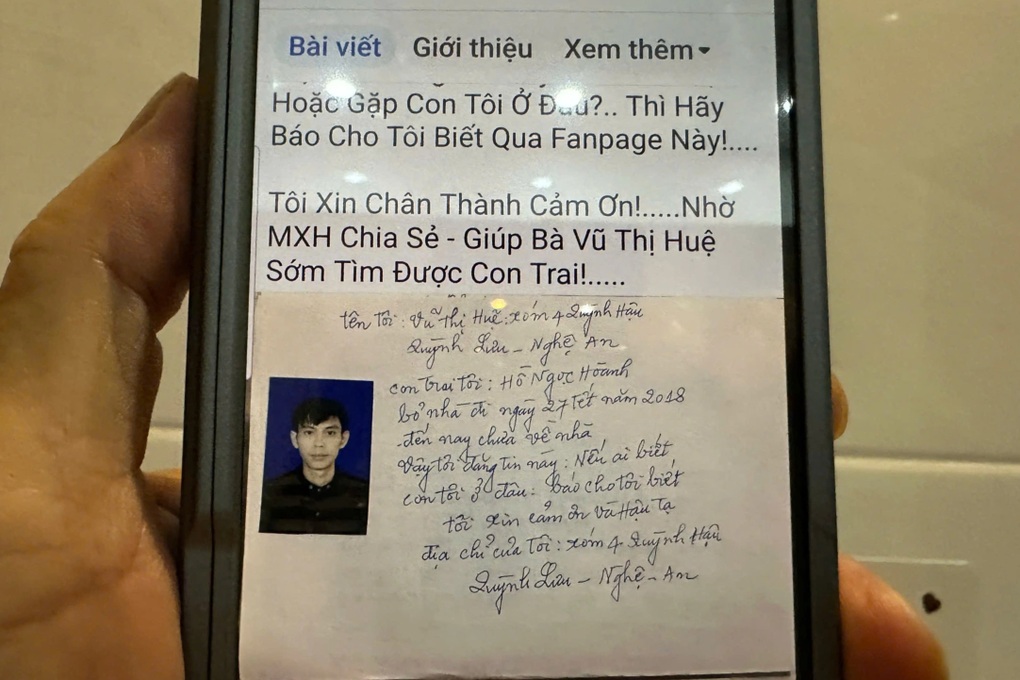 Bài viết Giới thiệu Xem thêm
Hoặc Gặp Con Tôi Ở Đâu?.. Thì Hãy
Báo Cho Tôi Biết Qua Fanpage Này!....
Tôi Xin Chân Thành Cảm Ơn!.....Nhờ
MXH Chia Sẻ - Giúp Bà Vũ Thị Huệ
Sớm Tìm Được Con Trai!.....
tên Tôi: Vũ Thị Huệ: xóm 4 Quỳnh Hậu
Quỳnh Lưu - Nghệ An
con trai tôi: Hồ Ngọc Hoành
bỏ nhà đi ngày 27 Tết năm 2018
đến nay chưa về nhà
Vậy tôi đăng tin này: Nếu ai biết
con tôi ở đâu: báo cho tôi biết
tôi xin cảm ơn và Hậu Tạ
địa chỉ của Tôi: xóm 4 Quỳnh Hậu
Quỳnh Lưu - Nghệ - An